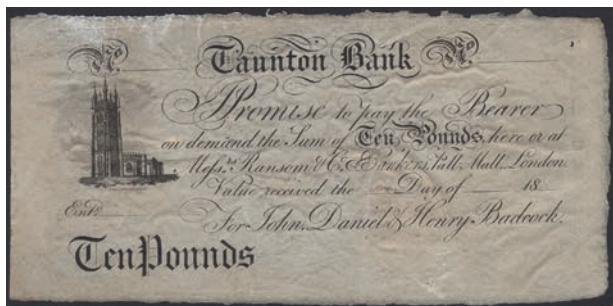 No. Taunton Bank No.
I Promise to pay the Bearer
on demand the Sum of Ten Pounds, here or at
Messrs. Ransom & Co. Bankers, Pall Mall, London.
Value received the Day of 18
Entd.
For John, Daniel & Henry Badcock.
Ten Pounds